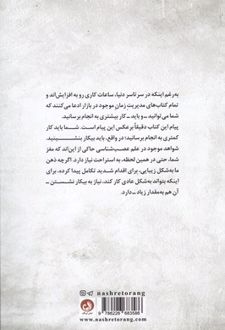 به‌رغم اینکه در سرتاسر دنیا، ساعات کاری رو به افزایش‌اند و
تمام کتاب‌های مدیریتِ زمانِ موجود در بازار ادعا می‌کنند که
شما می‌توانید ـ و باید ـ کار بیشتری به انجام برسانید.
پیام این کتاب دقیقاً برعکس این پیام است. شما باید کار
کمتری به انجام برسانید؛ در واقع، باید بیکار بنشینید.
شواهد موجود در علم عصب‌شناسی حاکی از این‌اند که مغز
شما، حتی در همین لحظه، به استراحت نیاز دارد. اگرچه ذهن
ما به‌شکل زیبایی، برای اقدام شدید تکامل پیدا کرده، برای
اینکه بتواند به‌شکل عادی کار کند، نیاز به بیکار نشستن ـ
آن هم به‌مقدار زیاد ـ دارد.
nashretorang
nashretorang
9 786226 683586